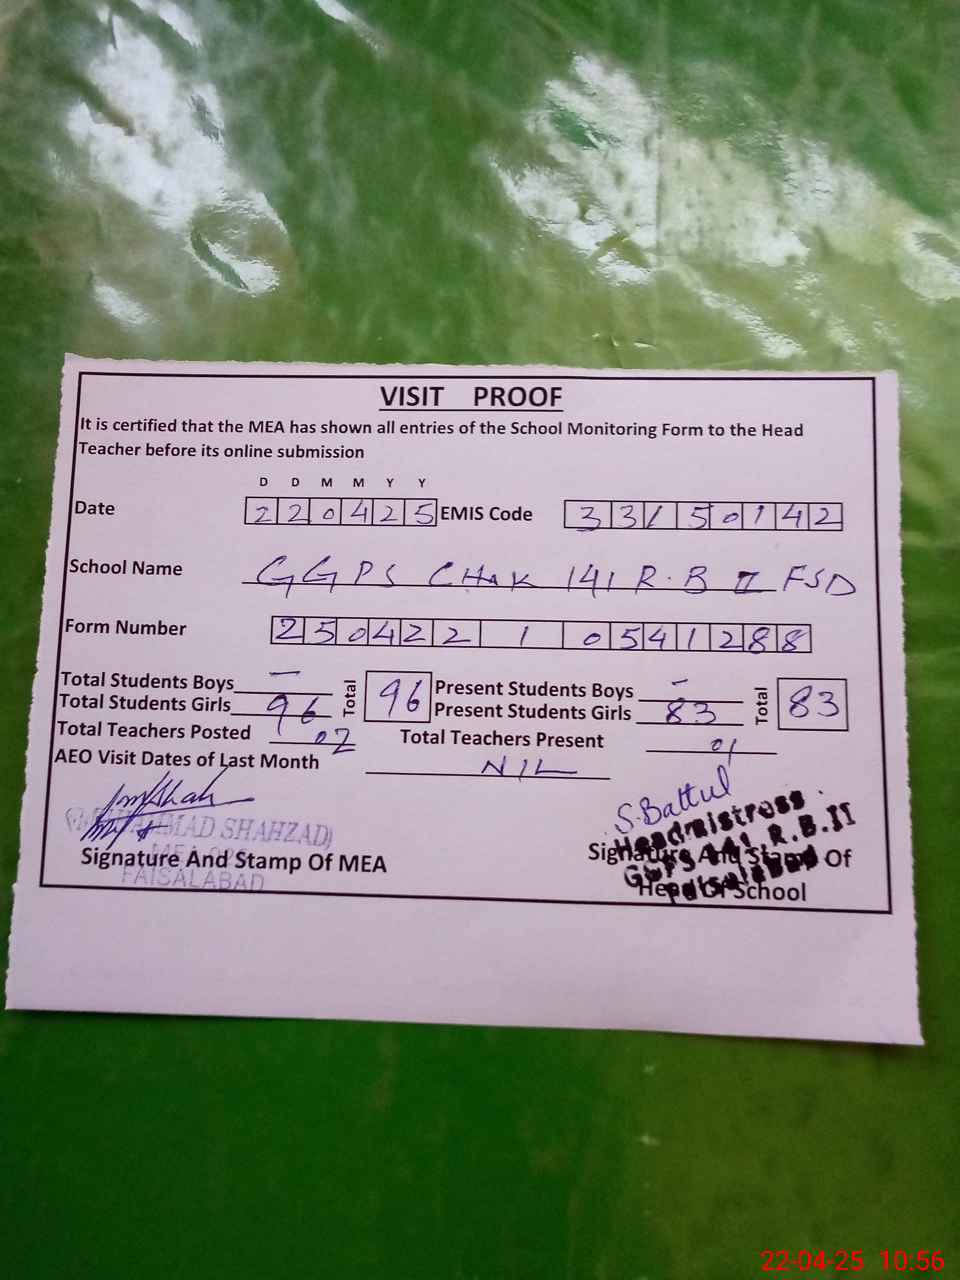 VISIT PROOF
It is certified that the MEA has shown all entries of the School Monitoring Form to the Head
Teacher before its online submission
D D M M Y Y
Date 2 2 0 4 2 5 EMIS Code 3 3 1 5 0 1 4 2
School Name GGPS CHAK 141 R.B II FSD
Form Number 2 5 0 4 2 2 1 0 5 4 1 2 8 8
Total Students Boys - Total 96 Present Students Boys - Total 83
Total Students Girls 96 Present Students Girls 83
Total Teachers Posted 02 Total Teachers Present 01
AEO Visit Dates of Last Month NIL
S.Battul
Headmistress
SHAHZAD)
R.B.II
Signature And Stamp Of MEA Signature And Stamp Of
FAISALABAD Head Of School
22-04-25 10:56